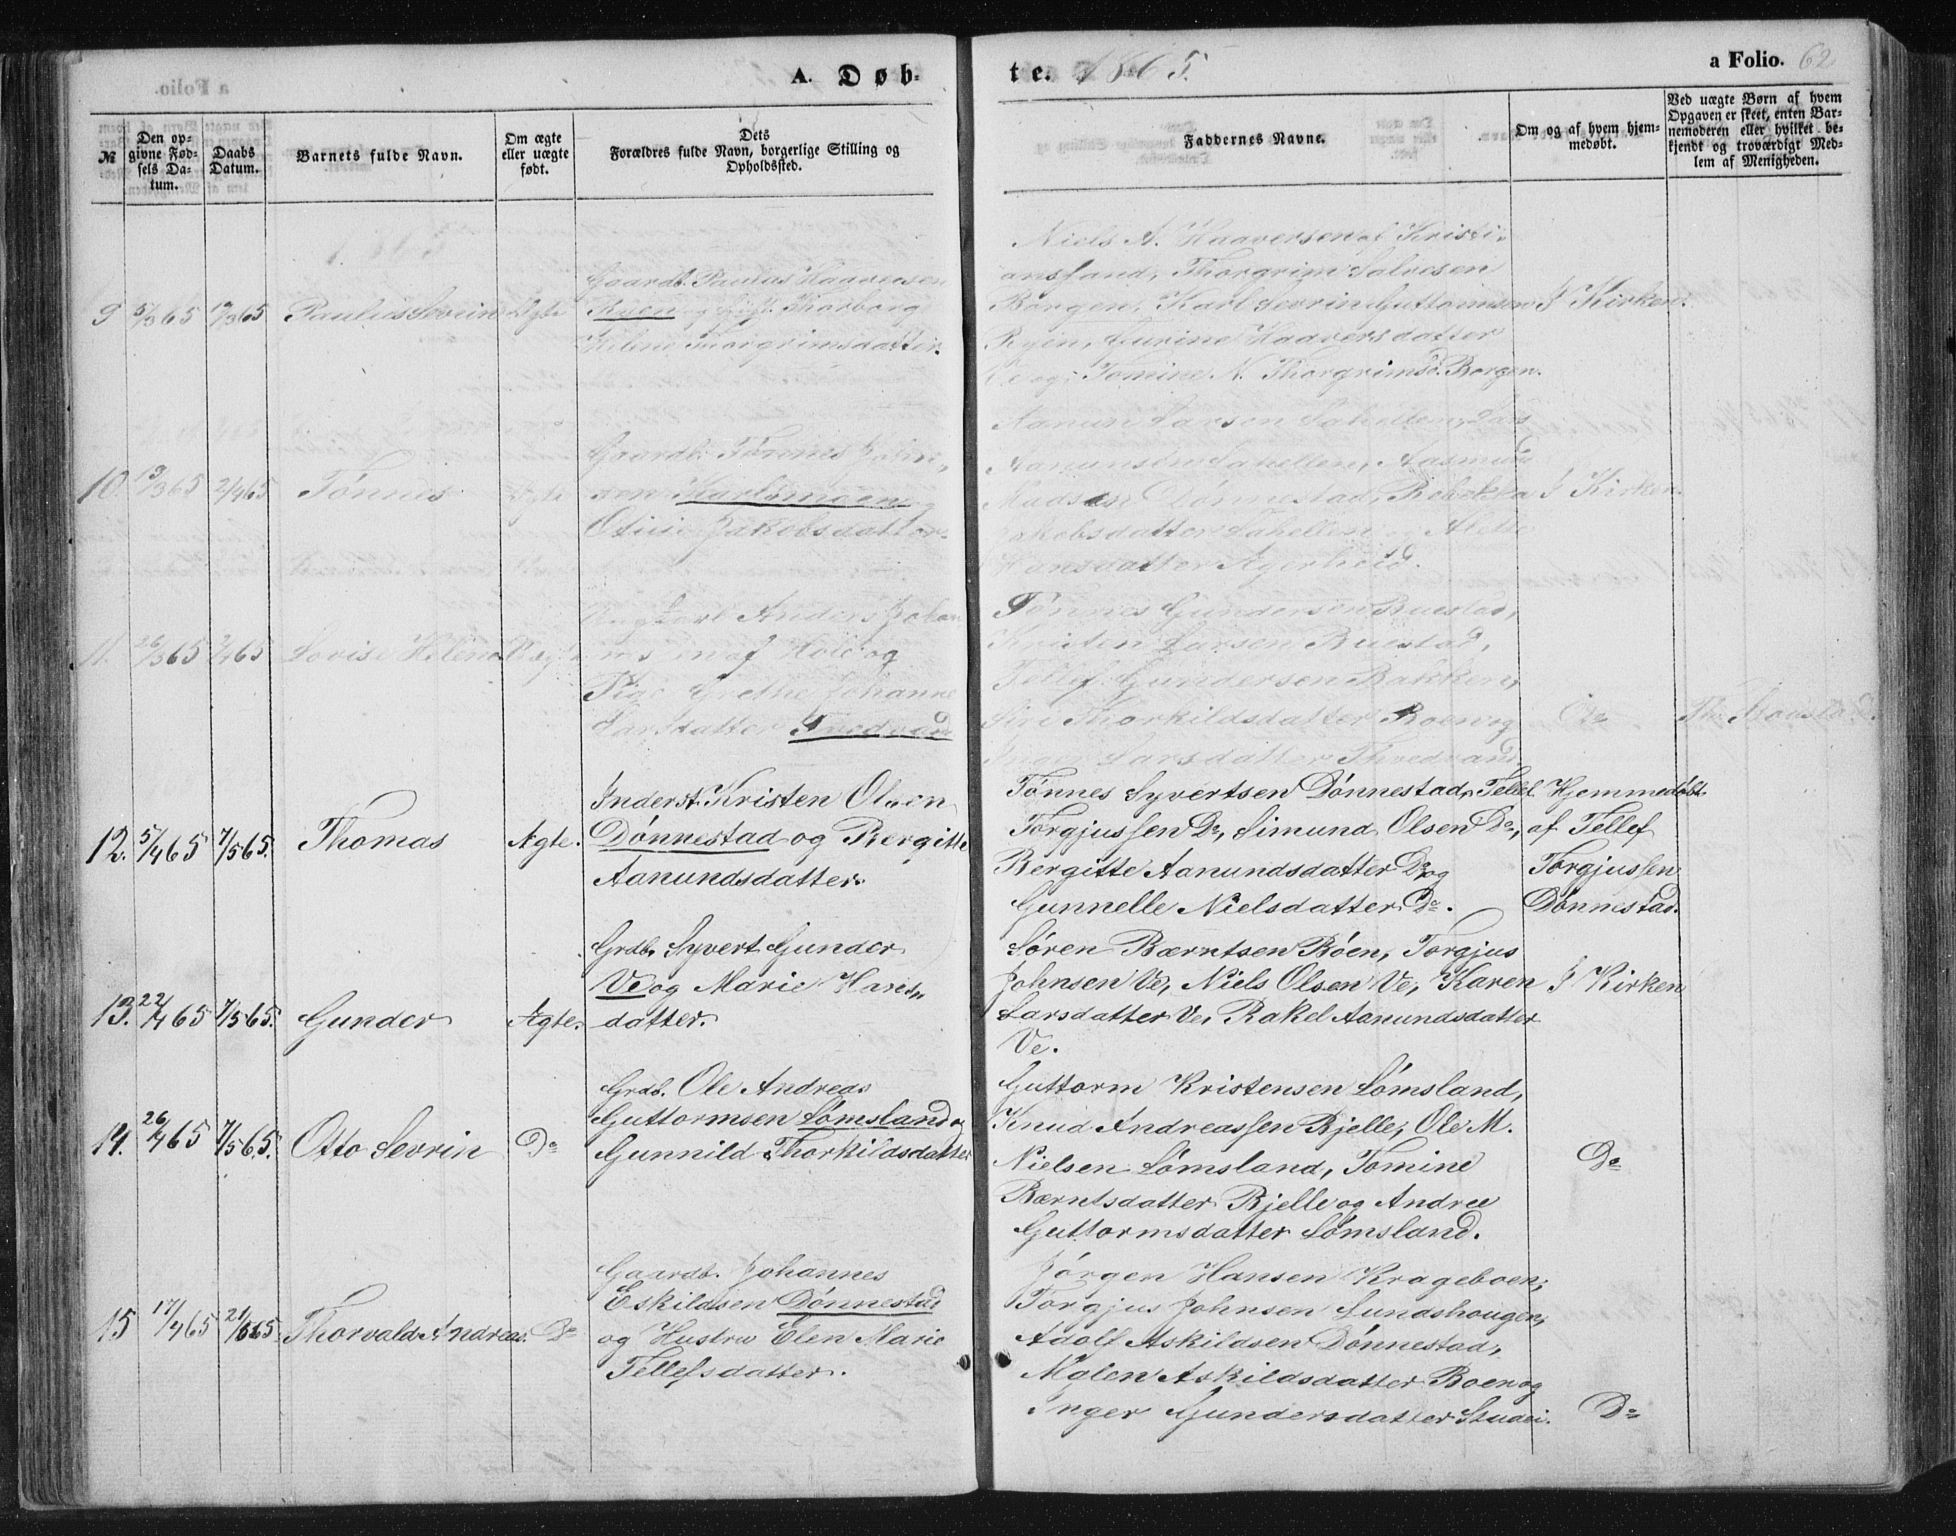 A. Døb-
te. 1865.
a Folio. 62
№
Den op-
givne Fød-
sels Da-
tum.
Daabs
Datum.
Barnets fulde Navn.
Om ægte
eller uægte
født.
Dets
Forældres fulde Navn, borgerlige Stilling og
Opholdssted.
Faddernes Navne.
Om og af hvem hjem-
medøbt.
Ved uægte Børn af hvem
Opgaven er skeet, enten Bar-
nemoderen eller hvilket be-
kjendt og troværdigt Med-
lem af Menigheden.
9 5/3 65 17/3 65 Paulus Sevrin Ægte
Gaardb. Paulus Haaversen
Ryen og Thorborg
Helene Thorgrimsdatter.
Niels A. Haaversen af Kristi-
ansand, Thorgrim Salvesen
Borgen, Karl Sevrin Guttormsen
Ryen, Gurine Haaversdatter
og Tomine N. Thorgrimsd. Borgen.
I Kirken.
10. 13/3 65 2/4 65 Tønnes Ægte
Gaardb. Tønnes John-
sen Karlsmoen
Otine Jakobsdatter.
Aanun Larsen Sahellen, Lars
Aanunsen Sahellen, Aasmund
Madsen Dønnestad, Rebekka
Jakobsdatter Sahellen
Hansdatter Agerheid.
I Kirken.
11. 26/3 65 2/4 65 Lovise Helene
Ungkarl Anders Johan
af Hole og
Pige Grethe Johanne
Larsdatter
Tønnes Gundersen Ruestad,
Kristen Larsen Ruestad,
Tellef Gundersen Bakken,
Siri Thorkildsdatter Boen og
Larsdatter
Do
12. 5/4 65 7/5 65. Thomas Ægte.
Inderst. Kristen Olsen
Dønnestad og Bergitte
Aanundsdatter.
Tønnes Syvertsen Dønnestad, Tellef
Torgjussen Do, Simund Olsen Do,
Bergitte Aanundsdatter Do og
Gunnelle Nielsdatter Do.
Hjemmedøbt
af Tellef
Torgjussen
Dønnestad.
13. 22/4 65 7/5 65. Gunder Ægte.
Grdb. Syvert Gunder
Ve og Marie Hans-
datter.
Søren Bærntsen Bóen, Torgjus
Johnsen Ve, Niels Olsen Ve, Karen
Larsdatter Ve, Rakel Aanundsdatter
Ve.
I Kirken
14. 26/4 65 7/5 65. Otto Sevrin Do
Grdb. Ole Andreas
Guttormsen Sømsland og
Gunnild Thorkildsdatter
Guttorm Kristensen Sømsland,
Knud Andreassen Bjelle, Ole M.
Nielsen Sømsland, Tomine
Bærntsdatter Bjelle og Andree
Guttormsdatter Sømsland.
Do
15 17/4 65 21/5 65. Thorvald Andreas. Do
Gaardb. Johannes
Eskildsen Dønnestad
og Hustru Elen Marie
Tellefsdatter.
Jørgen Hansen Krageboen,
Torgjus Johnsen Sundshougen,
Adolf Askildsen Dønnestad,
Malen Askildsdatter Boen og
Inger Gundersdatter Studei.
Do